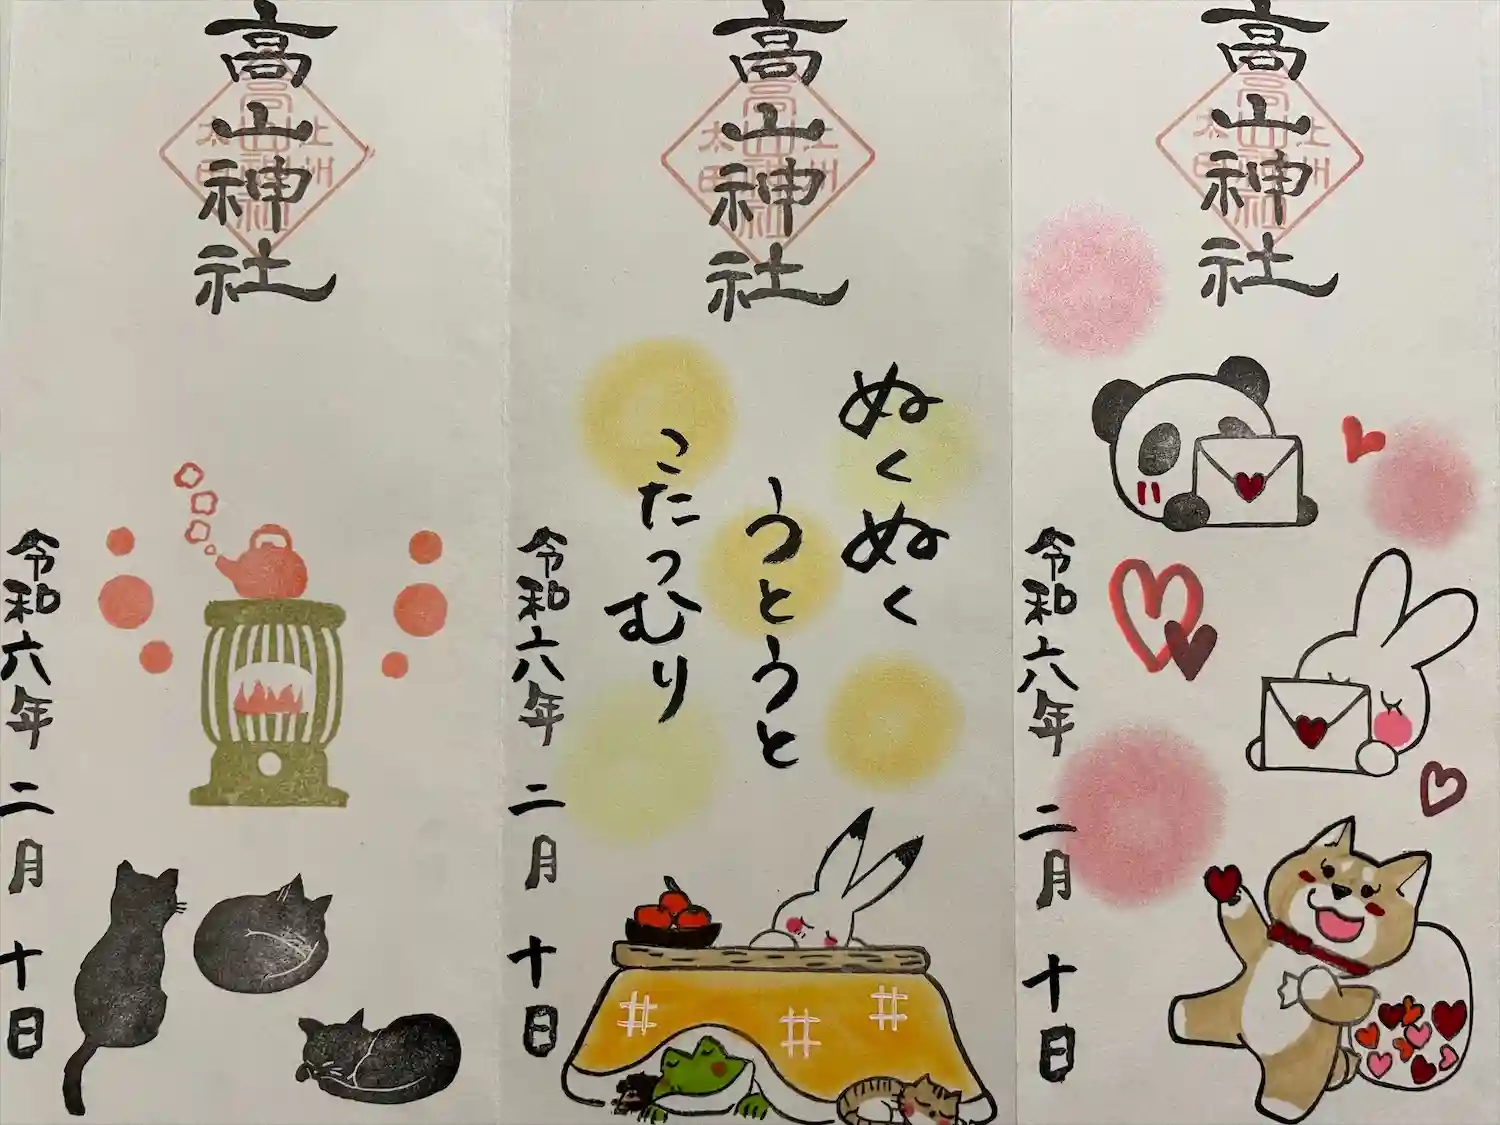 高山神社
上州
高山神社
太田
令和六年二月十日
高山神社
上州
高山神社
太田
ぬくぬく
うとうと
こたつむり
令和六年二月十日
高山神社
上州
高山神社
太田
令和六年二月十日